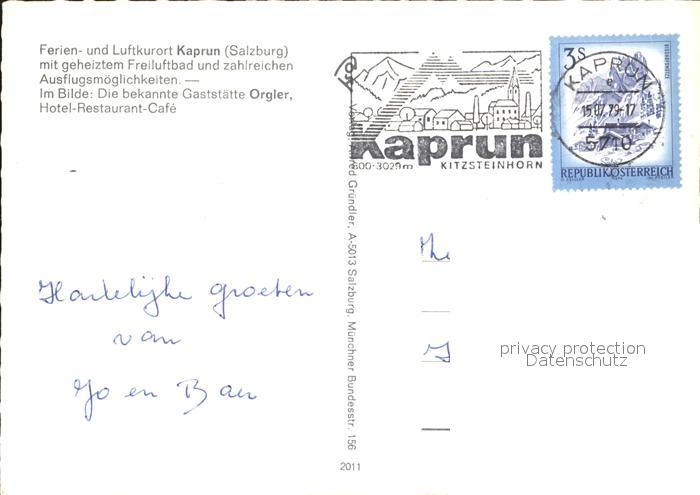 Ferien- und Luftkurort Kaprun (Salzburg)
mit geheiztem Freiluftbad und zahlreichen
Ausflugsmöglichkeiten. —
Im Bilde: Die bekannte Gaststätte Orgler,
Hotel-Restaurant-Café
Kaprun
800-3029m KITZSTEINHORN
3S
KAPRUN
e
15.07.79-17
5710
REPUBLIK ÖSTERREICH
Gründler, A-5013 Salzburg, Münchner Bundesstr. 156
Hartelijke groeten
van
Jo en Bau
privacy protection
Datenschutz
2011